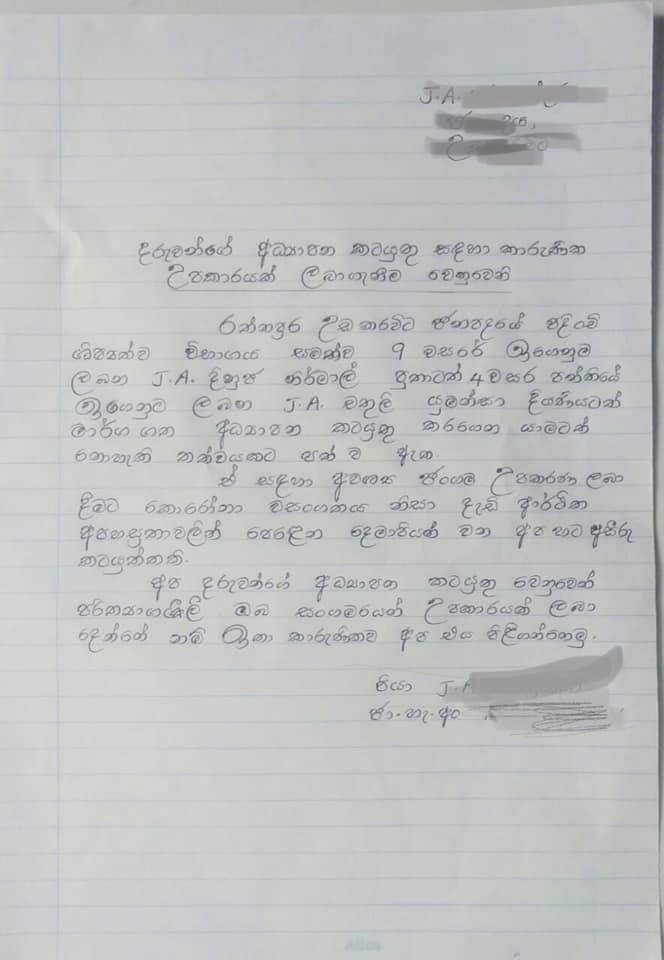 J.A.
දරුවන්ගේ අධ්‍යාපන කටයුතු සඳහා කාරුණික
උපකාරයක් ලබාගැනීම වෙනුවෙනි
රත්නපුර උඩ කරවිට ජනපදයේ පදිංචි
ශිෂ්‍යත්ව විභාගය සමත්ව 9 වසරේ ඉගෙනුම
ලබන J.A. දිනුජ නිර්මාල් පුතාටත් 4 වසර පන්තියේ
ඉගෙනුම ලබන J.A. චතුලි යුමන්සා දියණියටත්
මාර්ග ගත අධ්‍යාපන කටයුතු කරගෙන යාමටත්
නොහැකි තත්වයකට පත් ව ඇත.
ඒ සඳහා අවශ්‍ය ජංගම උපකරණ ලබා
දීමට කොරෝනා වසංගතය නිසා දැඩි ආර්ථික
අපහසුතාවලින් පෙළෙන දෙමාපියන් වන අප හට අසීරු
කටයුත්තකි.
අප දරුවන්ගේ අධ්‍යාපන කටයුතු වෙනුවෙන්
පරිත්‍යාගශීලී ඔබ සංගමයෙන් උපකාරයක් ලබා
දෙන්නේ නම් ඉතා කාරුණිකව අප එය පිළිගන්නෙමු.
පියා J.A
ජා.හැ.අං